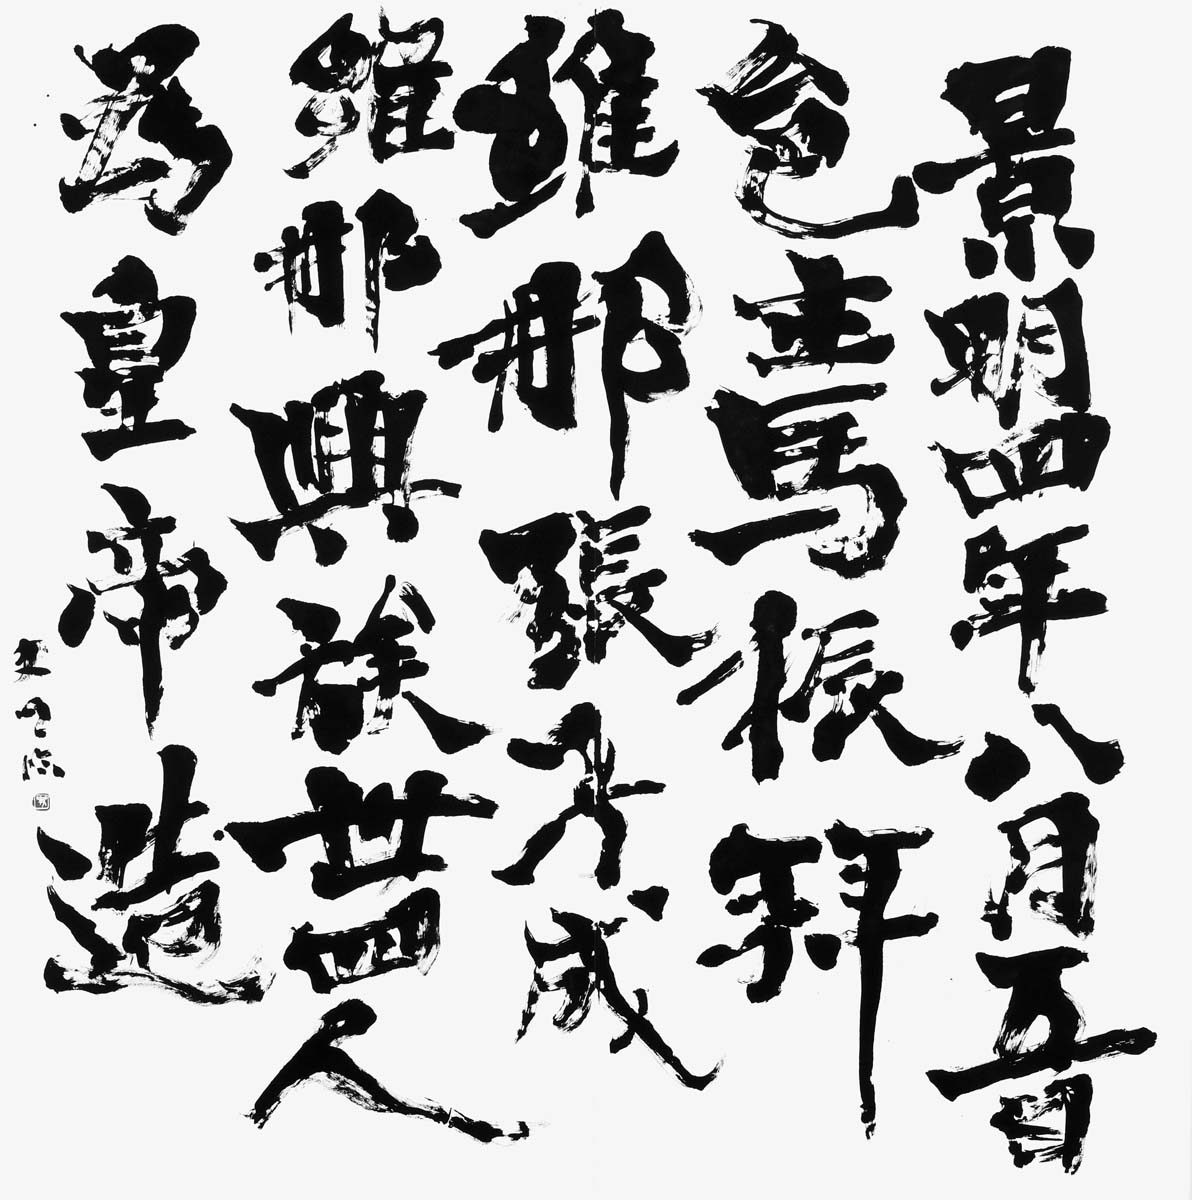 景明四年八月五日
邑主馬振拜
維那張子成
維那興族卅四人
為皇帝造